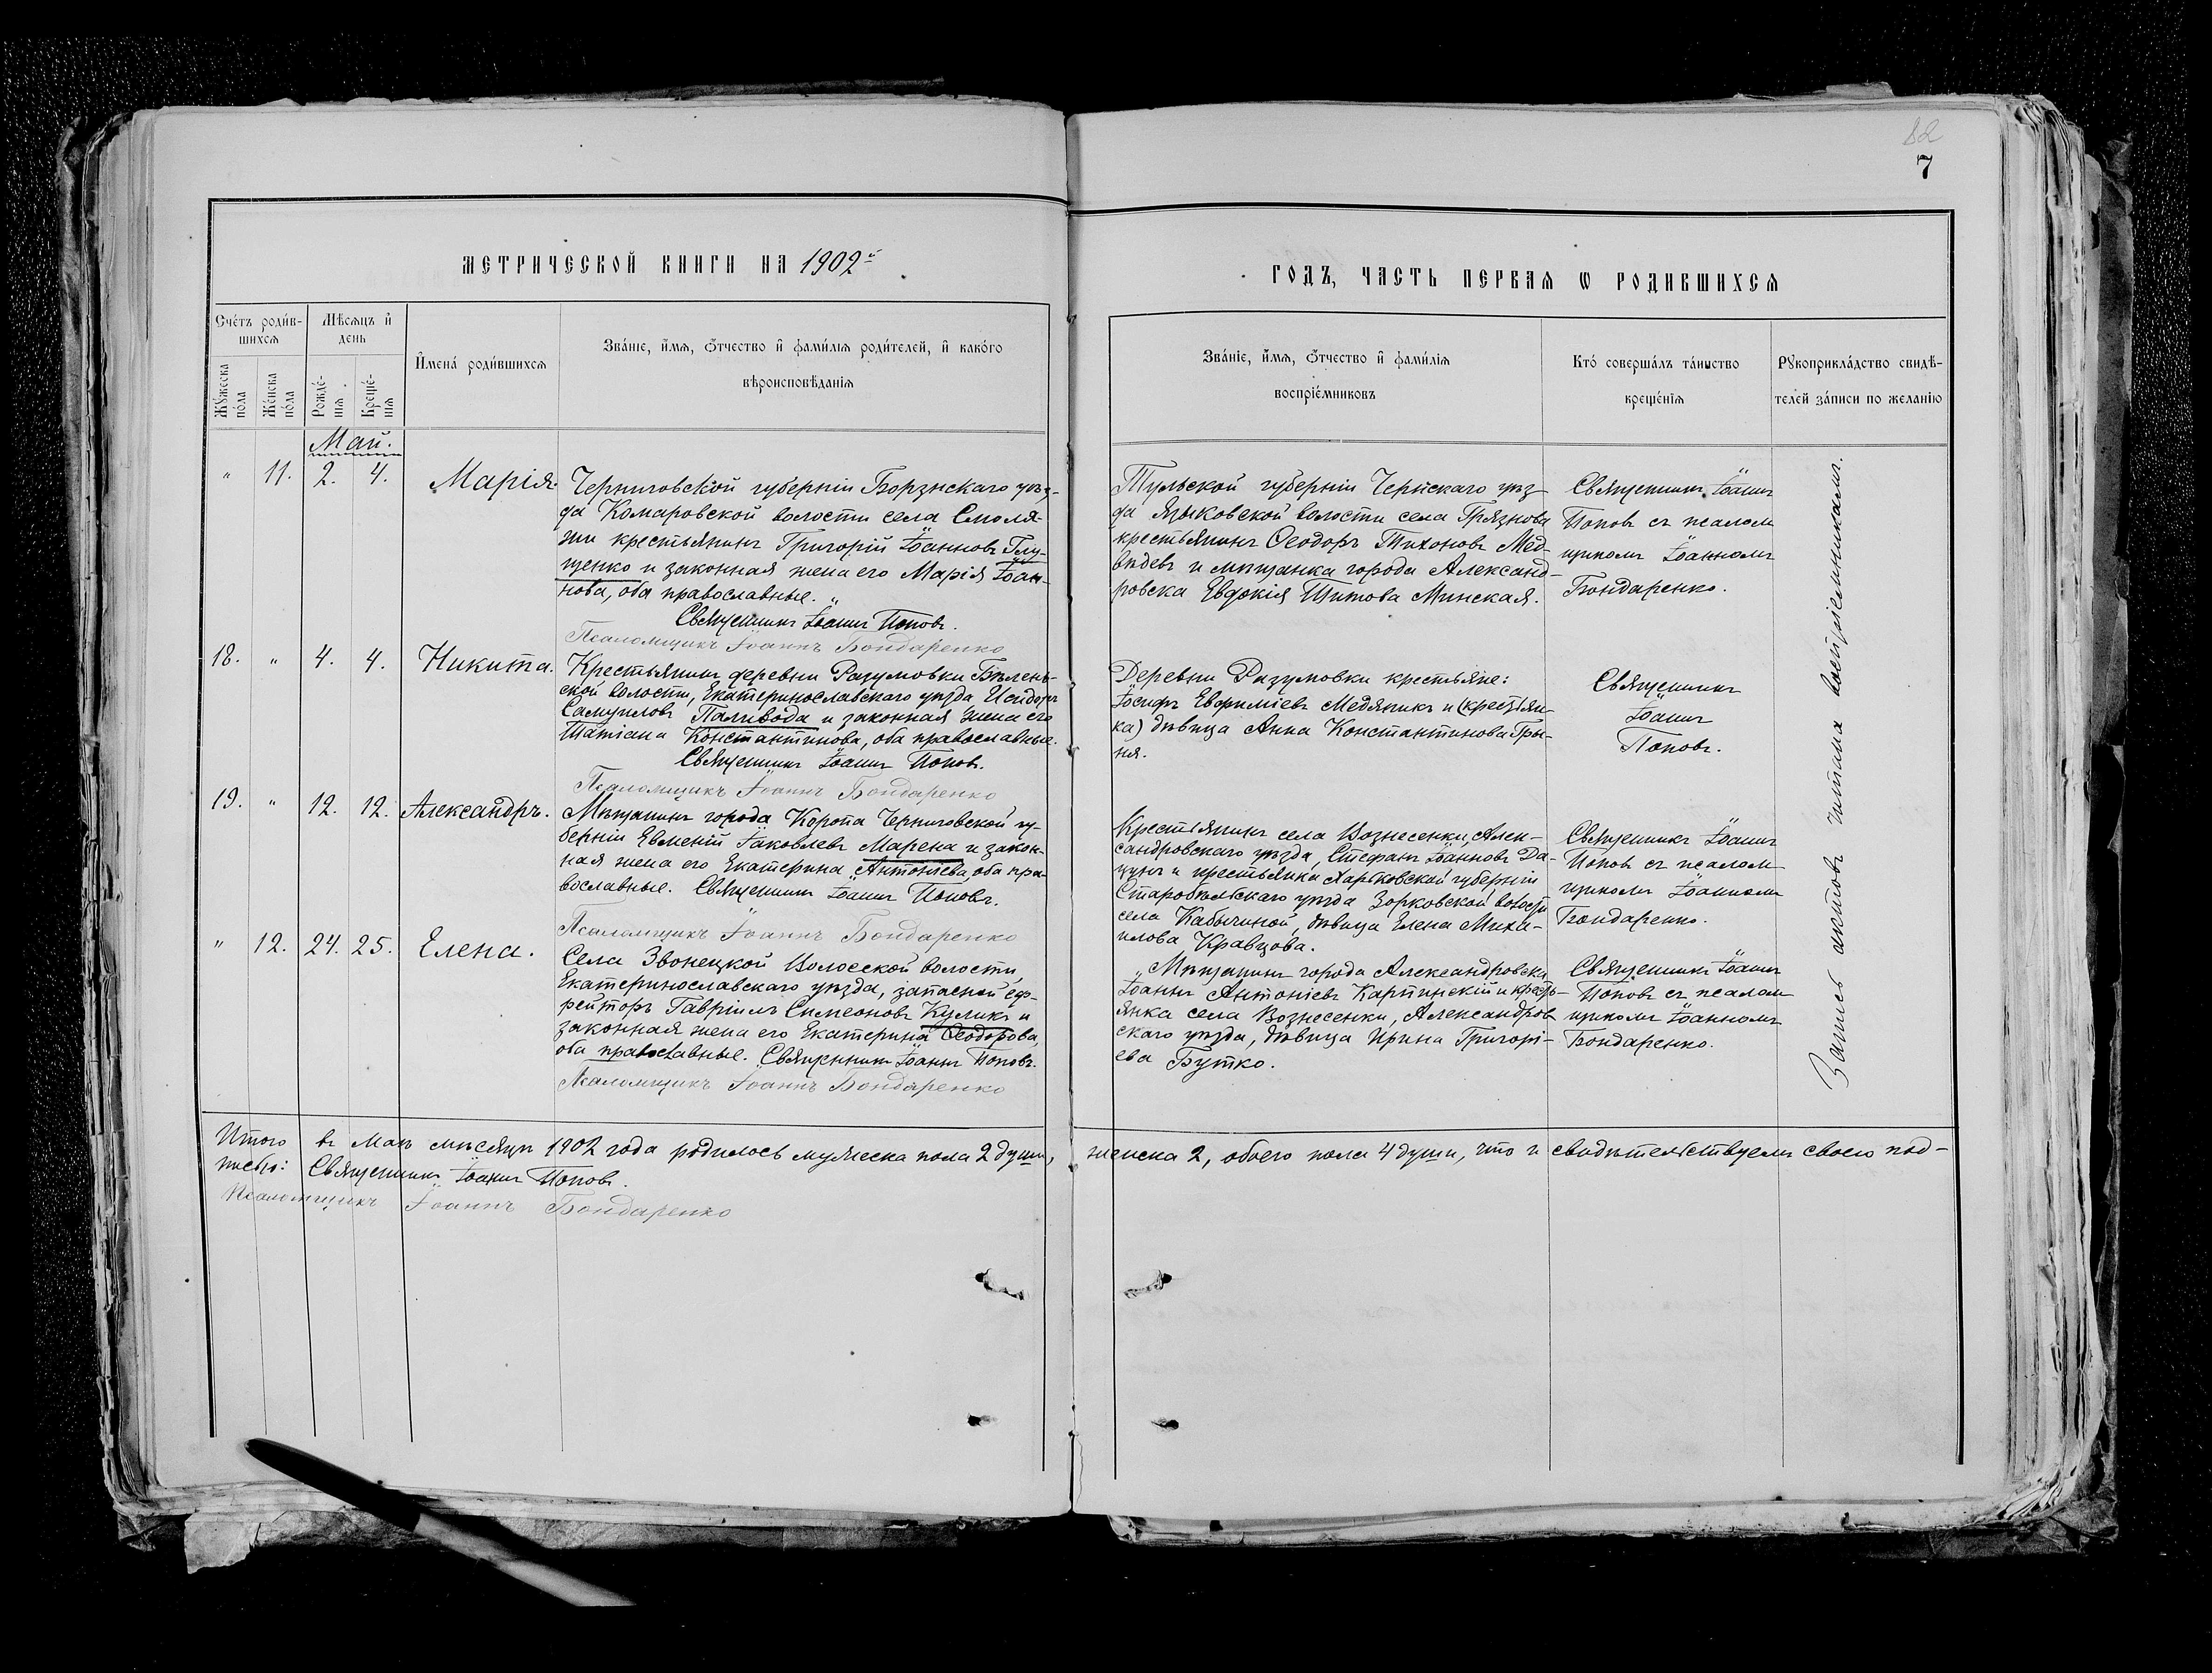 82
7
МЕТРИЧЕСКОЙ КНИГИ НА 1902й
ГОДЪ, ЧАСТЬ ПЕРВАЯ Ѡ РОДИВШИХСЯ
Счетъ родив-
шихся
Мѣсяцъ и
день
Мужеска
пола
Женска
пола
Рожде-
нія
Креще-
нія
Имена родившихся
Званіе, имя, отчество и фамилія родителей, и какого
вѣроисповѣданія
Званіе, имя, отчество и фамилія
воспріемниковъ
Кто совершалъ таинство
крещенія
Рукоприкладство свидѣ-
телей записи по желанію
Май.
" 11. 2. 4. Марія.
Черниговской губерніи Борзнскаго уѣз-
да Комаровской волости села Смоля-
жи крестьянинъ Григорій Іоанновъ Глу-
щенко и законная жена его Марія Іоан-
нова, оба православные.
Священникъ Іоаннъ Поповъ.
Псаломщикъ Іоаннъ Бондаренко
Тульской губерніи Чернскаго уѣз-
да Языковской волости села Грязнова
крестьянинъ Ѳеодоръ Тихоновъ Мед-
вѣдевъ и мѣщанка города Александ-
ровска Евдокія Титова Минская.
Священникъ Іоаннъ
Поповъ съ псалом
щикомъ Іоанномъ
Бондаренко.
18. " 4. 4. Никита.
Крестьянинъ деревни Разумовки Бѣлень-
ской волости, Екатеринославскаго уѣзда Исидоръ
Самуиловъ Паливода и законная жена его
Татіана Константинова, оба православные.
Священникъ Іоаннъ Поповъ.
Псаломщикъ Іоаннъ Бондаренко
Деревни Разумовки крестьяне:
Іосифъ Евфиміевъ Медяникъ и (крестьян-
ка) дѣвица Анна Константинова Гры-
ня.
Священникъ
Іоаннъ
Поповъ.
19. " 12. 12. Александръ.
Мѣщанинъ города Коропа Черниговской гу-
берніи Евменій Іаковлевъ Марена и закон-
ная жена его Екатерина Антоніева, оба пра-
вославные. Священникъ Іоаннъ Поповъ.
Псаломщикъ Іоаннъ Бондаренко
Крестьянинъ села Вознесенки, Алек-
сандровскаго уѣзда, Стефанъ Іоанновъ Да-
цунъ и крестьянка Харьковской губерніи
Старобѣльскаго уѣзда Зорковской волости
села Кабычиной, дѣвица Елена Миха-
илова Кравцова.
Священникъ Іоаннъ
Поповъ съ псалом
щикомъ Іоанномъ
Бондаренко.
" 12. 24. 25. Елена.
Села Звонецкой Волосской волости,
Екатеринославскаго уѣзда, запасной еф-
рейторъ Гавріилъ Симеоновъ Куликъ и
законная жена его Екатерина Ѳеодорова,
оба православные. Священникъ Іоаннъ Поповъ.
Псаломщикъ Іоаннъ Бондаренко
Мѣщанинъ города Александровска
Іоаннъ Антоніевъ Карпинскій и кресть-
янка села Вознесенки, Александров
скаго уѣзда, дѣвица Ирина Григорі-
ева Бутко.
Священникъ Іоаннъ
Поповъ съ псалом
щикомъ Іоанномъ
Бондаренко.
Запись актовъ читана воспріемникамъ.
Итого въ Маѣ мѣсяцѣ 1902 года родилось мужеска пола 2 души, женска 2, обоего пола 4 души, что и свидѣтельствуемъ своею под-
писью: Священникъ Іоаннъ Поповъ.
Псаломщикъ Іоаннъ Бондаренко